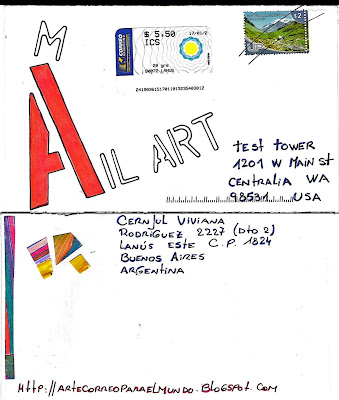 MAIL ART
CORREO
$ 5.50
ICS
17/01/2
20 grs
B0072 LANUS
TEST TOWER
1201 W MAIN ST
CENTRALIA WA
98531 USA
CERNJUL VIVIANA
RODRÍGUEZ 2227 (DTO 2)
LANÚS ESTE C.P. 1824
BUENOS AIRES
ARGENTINA
HTTP://ARTECORREOPARAELMUNDO.BLOGSPOT.COM